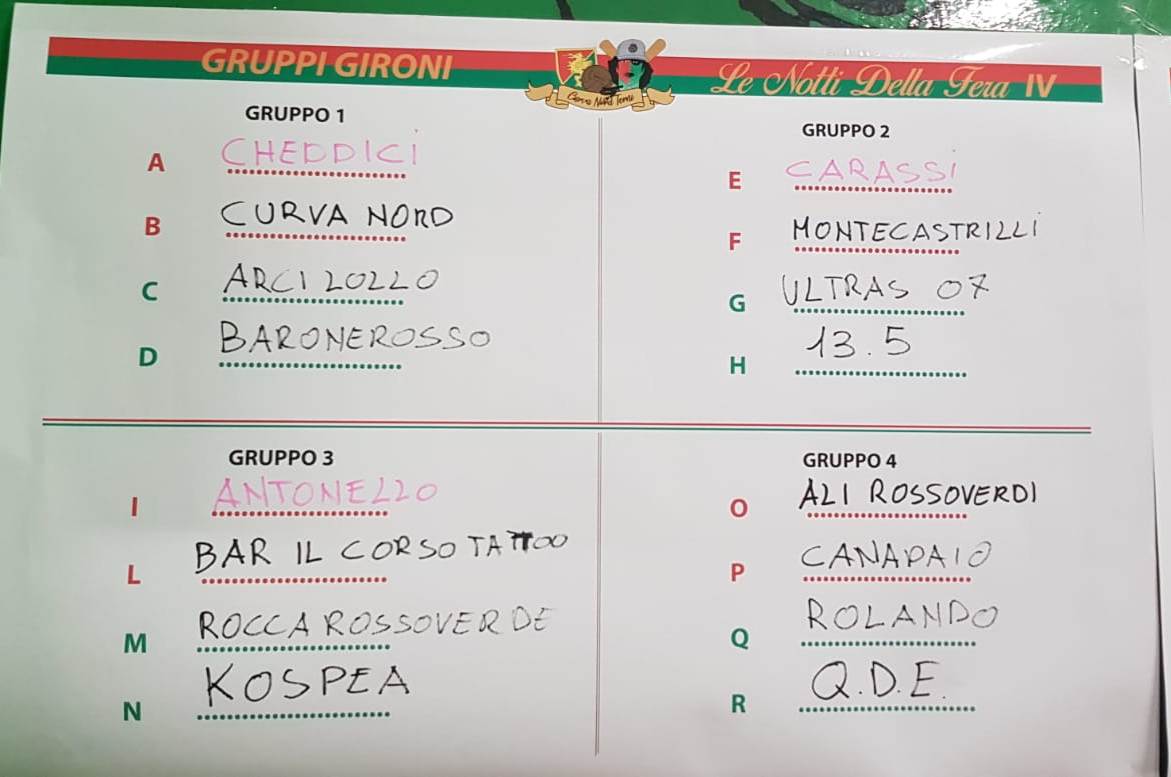 GRUPPI GIRONI
Le Notti Della Fera IV
GRUPPO 1
A CHEDDICI
B CURVA NORD
C ARCI LOLLO
D BARONEROSSO
GRUPPO 2
E CARASSI
F MONTECASTRILLI
G ULTRAS 07
H 13.5
GRUPPO 3
I ANTONELLO
L BAR IL CORSO TATTOO
M ROCCA ROSSOVERDE
N KOSPEA
GRUPPO 4
O ALI ROSSOVERDI
P CANAPAIO
Q ROLANDO
R Q.D.E.